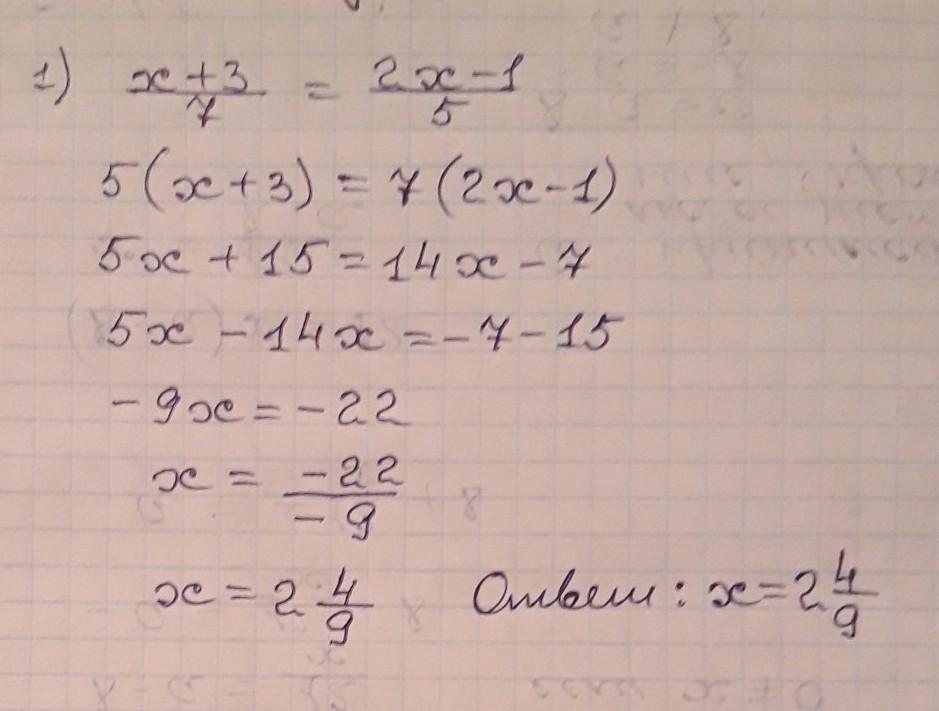 1) x+3/7 = 2x-1/5
5(x+3) = 7(2x-1)
5x + 15 = 14x - 7
5x - 14x = -7 - 15
-9x = -22
x = -22/-9
x = 2 4/9 Ответ: x = 2 4/9